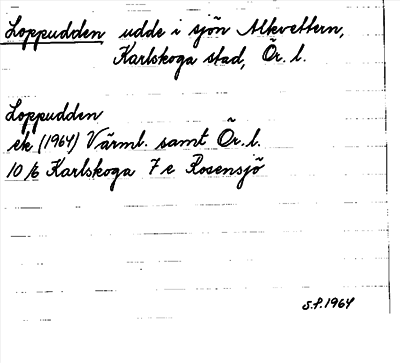 Loppudden udde i sjön Alkvettern,
Karlskoga stad, Ör. l.
Loppudden
ek (1964) Värml. samt Ör. l.
10/6 Karlskoga 7 e Rosensjö
S.P. 1964